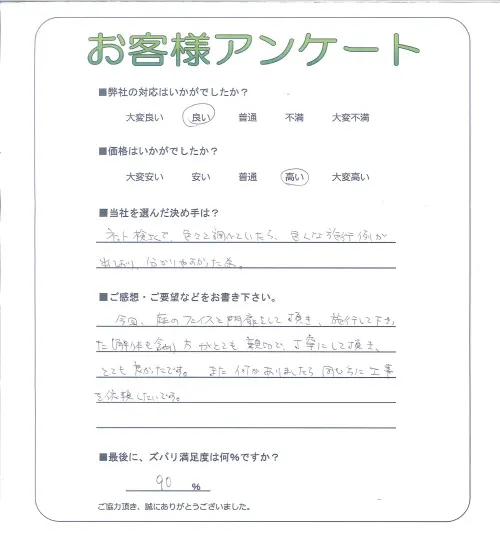 お客様アンケート
■弊社の対応はいかがでしたか?
大変良い 良い 普通 不満 大変不満
■価格はいかがでしたか?
大変安い 安い 普通 高い 大変高い
■当社を選んだ決め手は?
ネット検索で、色々と調べていたら、色々な施行例が
出ており、分かりやすかった為。
■ご感想・ご要望などをお書き下さい。
今回、庭のフェイスと門扉をして頂き、施行して下さっ
た(解体も含め)方がとても親切で、丁寧にして頂き、
とても良かったです。また何かありましたら同じように工事
を依頼したいです。
■最後に、ズバリ満足度は何%ですか?
90 %
ご協力頂き、誠にありがとうございました。